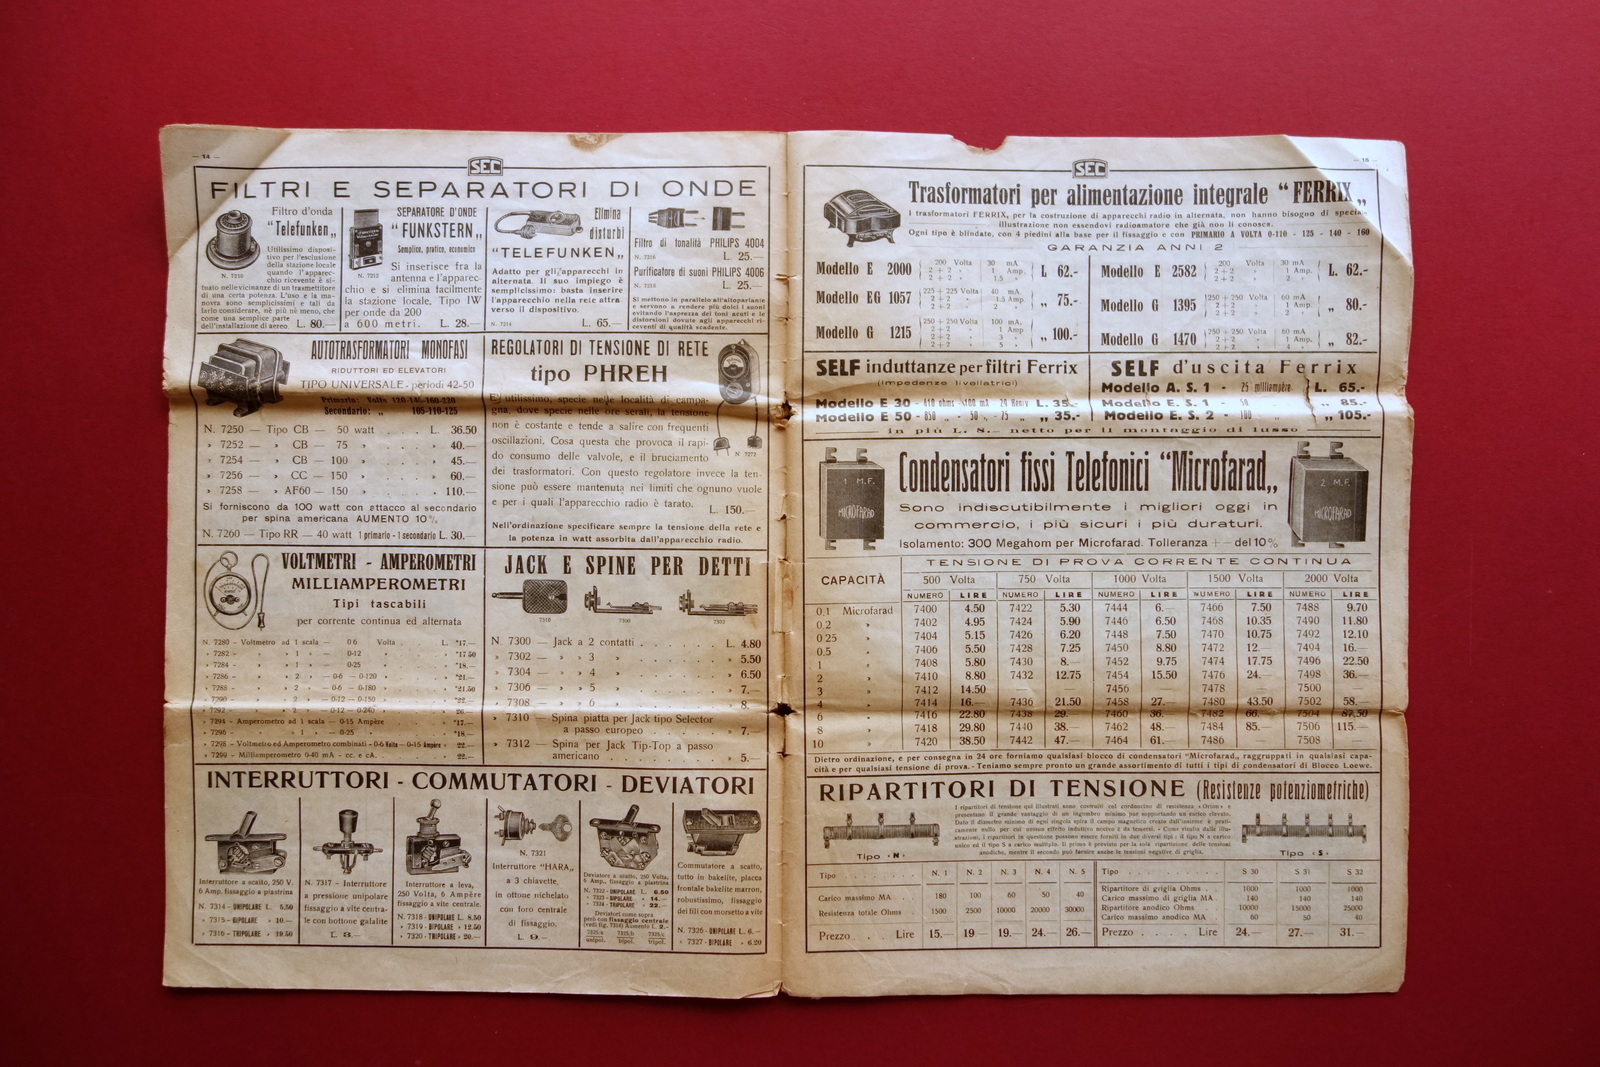 — 14 —
SEC
FILTRI E SEPARATORI DI ONDE
Filtro d'onda
"Telefunken„
Utilissimo disposi-
tivo per l'esclusione
della stazione locale
quando l'apparec-
chio ricevente è si-
tuato nelle vicinanze di un trasmettitore
di una certa potenza. L'uso e la ma-
novra sono semplicissimi e tali da
farlo considerare, nè più nè meno, che
come una semplice parte
dell'installazione di aereo. L. 80.—
N. 7210
SEPARATORE D'ONDE
"FUNKSTERN„
Semplice, pratico, economico
N. 7212
Si inserisce fra la
antenna e l'apparec-
chio e si elimina facilmente
la stazione locale. Tipo IW
per onde da 200
a 600 metri. L. 28.—
Elimina
disturbi
"TELEFUNKEN„
Adatto per gli apparecchi in
alternata. Il suo impiego è
semplicissimo: basta inserire
l'apparecchio nella rete attra
verso il dispositivo.
N. 7214 L. 65.—
Filtro di tonalità PHILIPS 4004
N. 7216 L. 25.—
Purificatore di suoni PHILIPS 4006
N. 7218 L. 25.—
Si mettono in parallelo all'altoparlante
e servono a rendere più dolci i suoni
evitando l'asprezza dei toni acuti e le
distorsioni dovute agli apparecchi ri-
ceventi di qualità scadente.
AUTOTRASFORMATORI MONOFASI
RIDUTTORI ED ELEVATORI
TIPO UNIVERSALE - periodi 42-50
Primario: Volta 120-145-160-220
Secondario: „ 105-110-125
N. 7250 — Tipo CB — 50 watt . . . L. 36.50
» 7252 — » CB — 75 » . . . » 40.—
» 7254 — » CB — 100 » . . . » 45.—
» 7256 — » CC — 150 » . . . » 60.—
» 7258 — » AF60 — 150 » . . . » 110.—
Si forniscono da 100 watt con attacco al secondario
per spina americana AUMENTO 10%
N. 7260 — Tipo RR — 40 watt 1 primario - 1 secondario L. 30.—
REGOLATORI DI TENSIONE DI RETE
tipo PHREH
E' utilissimo, specie nelle località di campa-
gna, dove specie nelle ore serali, la tensione
non è costante e tende a salire con frequenti
oscillazioni. Cosa questa che provoca il rapi-
do consumo delle valvole, e il bruciamento
dei trasformatori. Con questo regolatore invece la ten-
sione può essere mantenuta nei limiti che ognuno vuole
e per i quali l'apparecchio radio è tarato. L. 150.—
N 7272
Nell'ordinazione specificare sempre la tensione della rete e
la potenza in watt assorbita dall'apparecchio radio.
VOLTMETRI - AMPEROMETRI
MILLIAMPEROMETRI
Tipi tascabili
per corrente continua ed alternata
N. 7280 - Voltmetro ad 1 scala — 0-6 Volta . . L. "17.—
» 7282 - » » 1 » — 0-12 » . . » "17.50
» 7284 - » » 1 » — 0-25 » . . » "18.—
» 7286 - » » 2 » — 0-6 — 0-120 » . . » "21.—
» 7288 - » » 2 » — 0-6 — 0-180 » . . » "21.50
» 7290 - » » 2 » — 0-12 — 0-150 » . . » "22.—
» 7292 - » » 2 » — 0-12 — 0-240 » . . » "22.—
» 7294 - Amperometro ad 1 scala — 0-15 Ampère . . » "17.—
» 7296 - » » 1 » — 0-25 » . . » "18.—
» 7298 - Voltmetro ed Amperometro combinati - 0-6 Volta — 0-15 Ampère - » 22.—
» 7299 - Milliamperometro 0-40 mA - cc. e cA. . . » 22.—
JACK E SPINE PER DETTI
7310 7300 7302
N. 7300 — Jack a 2 contatti . . . L. 4.80
» 7302 — » » 3 » . . . » 5.50
» 7304 — » » 4 » . . . » 6.50
» 7306 — » » 5 » . . . » 7.—
» 7308 — » » 6 » . . . » 8.
» 7310 — Spina piatta per Jack tipo Selector
a passo europeo . . . » 7.—
» 7312 — Spina per Jack Tip-Top a passo
americano . . . » 5.—
INTERRUTTORI - COMMUTATORI - DEVIATORI
Interruttore a scatto, 250 V.
6 Amp. fissaggio a piastrina
N. 7314 - UNIPOLARE L. 5.50
» 7315 - BIPOLARE » 10.—
» 7316 - TRIPOLARE » 19.50
N. 7317 - Interruttore
a pressione unipolare
fissaggio a vite centra-
le con bottone galalite
L. 3.—
Interruttore a leva,
250 Volta, 6 Ampère
fissaggio a vite centrale.
N. 7318 - UNIPOLARE L. 8.50
» 7319 - BIPOLARE » 12.50
» 7320 - TRIPOLARE » 20.—
N. 7321
Interruttore "HARA„
a 3 chiavette,
in ottone nichelato
con foro centrale
di fissaggio.
L. 9.—
Deviatore a scatto, 250 Volta,
6 Amp., fissaggio a piastrina
N. 7322 - UNIPOLARE L. 6.50
» 7323 - BIPOLARE » 14.—
» 7324 - TRIPOLARE » 22.—
Deviatori come sopra
però con fissaggio centrale
(vedi fig. 7318) Aumento L. 2.—
7325/a 7325/b 7325/c
unipol. bipol. tripol.
Commutatore a scatto,
tutto in bakelite, placca
frontale bakelite marron,
robustissimo, fissaggio
dei fili con morsetto a vite
N. 7326 - UNIPOLARE L. 6.—
» 7327 - BIPOLARE » 6.20
— 15 —
SEC
Trasformatori per alimentazione integrale "FERRIX„
I trasformatori FERRIX, per la costruzione di apparecchi radio in alternata, non hanno bisogno di speciale
illustrazione non essendovi radioamatore che già non li conosca.
Ogni tipo è blindato, con 4 piedini alla base per il fissaggio e con PRIMARIO A VOLTA 0-110 - 125 - 140 - 160
GARANZIA ANNI 2
Modello E 2000 200 Volta 30 mA L 62.-
2+2 » 1 Amp.
2+2 » 1.5 »
Modello EG 1057 225+225 Volta 40 mA. „ 75.-
2+2 » 1.5 Amp.
2+2 » 2 »
Modello G 1215 250+250 Volta 100 mA. „ 100.-
2+2 » 1 Amp
2+2 » 3 »
2+2 » 5 »
Modello E 2582 200 Volta 30 mA L. 62.-
2+2 » 1 Amp.
2+2 » 2 »
Modello G 1395 250+250 Volta 60 mA „ 80.-
2+2 » 1 Amp.
Modello G 1470 250+250 Volta 60 mA „ 82.-
2+2 » 2 Amp.
2+2 » 4 »
SELF induttanze per filtri Ferrix
(Impedenze livellatrici)
Modello E 30 - 410 ohms - 400 mA 29 Henry L. 35.-
Modello E 50 - 850 „ - 50 „ - 75 „ „ 35.-
SELF d'uscita Ferrix
Modello A. S. 1 - 25 milliampère L. 65.-
Modello E. S. 1 - 50 » „ 85.-
Modello E. S. 2 - 100 » „ 105.-
in più L. 8.- netto per il montaggio di lusso
1 M.F.
MICROFARAD
Condensatori fissi Telefonici "Microfarad„
Sono indiscutibilmente i migliori oggi in
commercio, i più sicuri i più duraturi.
Isolamento: 300 Megahom per Microfarad. Tolleranza +— del 10%
2 M.F.
MICROFARAD
CAPACITÀ
TENSIONE DI PROVA CORRENTE CONTINUA
500 Volta 750 Volta 1000 Volta 1500 Volta 2000 Volta
NUMERO LIRE NUMERO LIRE NUMERO LIRE NUMERO LIRE NUMERO LIRE
0.1 Microfarad 7400 4.50 7422 5.30 7444 6.— 7466 7.50 7488 9.70
0.2 » 7402 4.95 7424 5.90 7446 6.50 7468 10.35 7490 11.80
0.25 » 7404 5.15 7426 6.20 7448 7.50 7470 10.75 7492 12.10
0.5 » 7406 5.50 7428 7.25 7450 8.80 7472 12.— 7494 16.—
1 » 7408 5.80 7430 8.— 7452 9.75 7474 17.75 7496 22.50
2 » 7410 8.80 7432 12.75 7454 15.50 7476 24.— 7498 36.—
3 » 7412 14.50 — 7456 — 7478 7500 —
4 » 7414 16.— 7436 21.50 7458 27.— 7480 43.50 7502 58.—
6 » 7416 22.80 7438 29.— 7460 36.— 7482 66.— 7504 87.50
8 » 7418 29.80 7440 38.— 7462 48.— 7484 85.— 7506 115.—
10 » 7420 38.50 7442 47.— 7464 61.— 7486 7508
Dietro ordinazione, e per consegna in 24 ore forniamo qualsiasi blocco di condensatori "Microfarad„ raggruppati in qualsiasi capa-
cità e per qualsiasi tensione di prova. - Teniamo sempre pronto un grande assortimento di tutti i tipi di condensatori di Blocco Loewe.
RIPARTITORI DI TENSIONE (Resistenze potenziometriche)
I ripartitori di tensione qui illustrati sono costruiti col cordoncino di resistenza «Orion» e
presentano il grande vantaggio di un ingombro minimo pur sopportando un carico elevato.
Dato il diametro minimo di ogni singola spira il campo magnetico creato dall'insieme è prati-
camente nullo per cui nessun effetto induttivo nocivo è da temersi. - Come risulta dalle illu-
strazioni, i ripartitori in questione possono essere forniti in due diversi tipi: il tipo N a carico
unico ed il tipo S a carico multiplo. Il primo è previsto per la sola ripartizione delle tensioni
anodiche, mentre il secondo può fornire anche le tensioni negative di griglia.
Tipo «N»
Tipo «S»
Tipo . . . N. 1 N. 2 N. 3 N. 4 N. 5
Carico massimo MA . 180 100 60 50 40
Resistenza totale Ohms 1500 2500 10000 20000 30000
Prezzo . . . Lire 15.— 19.— 19.— 24.— 26.—
Tipo . . . S 30 S 31 S 32
Ripartitore di griglia Ohms . . 1000 1000 1000
Carico massimo di griglia MA . 140 140 140
Ripartitore anodico Ohms . . 10000 15000 25000
Carico massimo anodico MA . 60 50 40
Prezzo . . . Lire 24.— 27.— 31.—